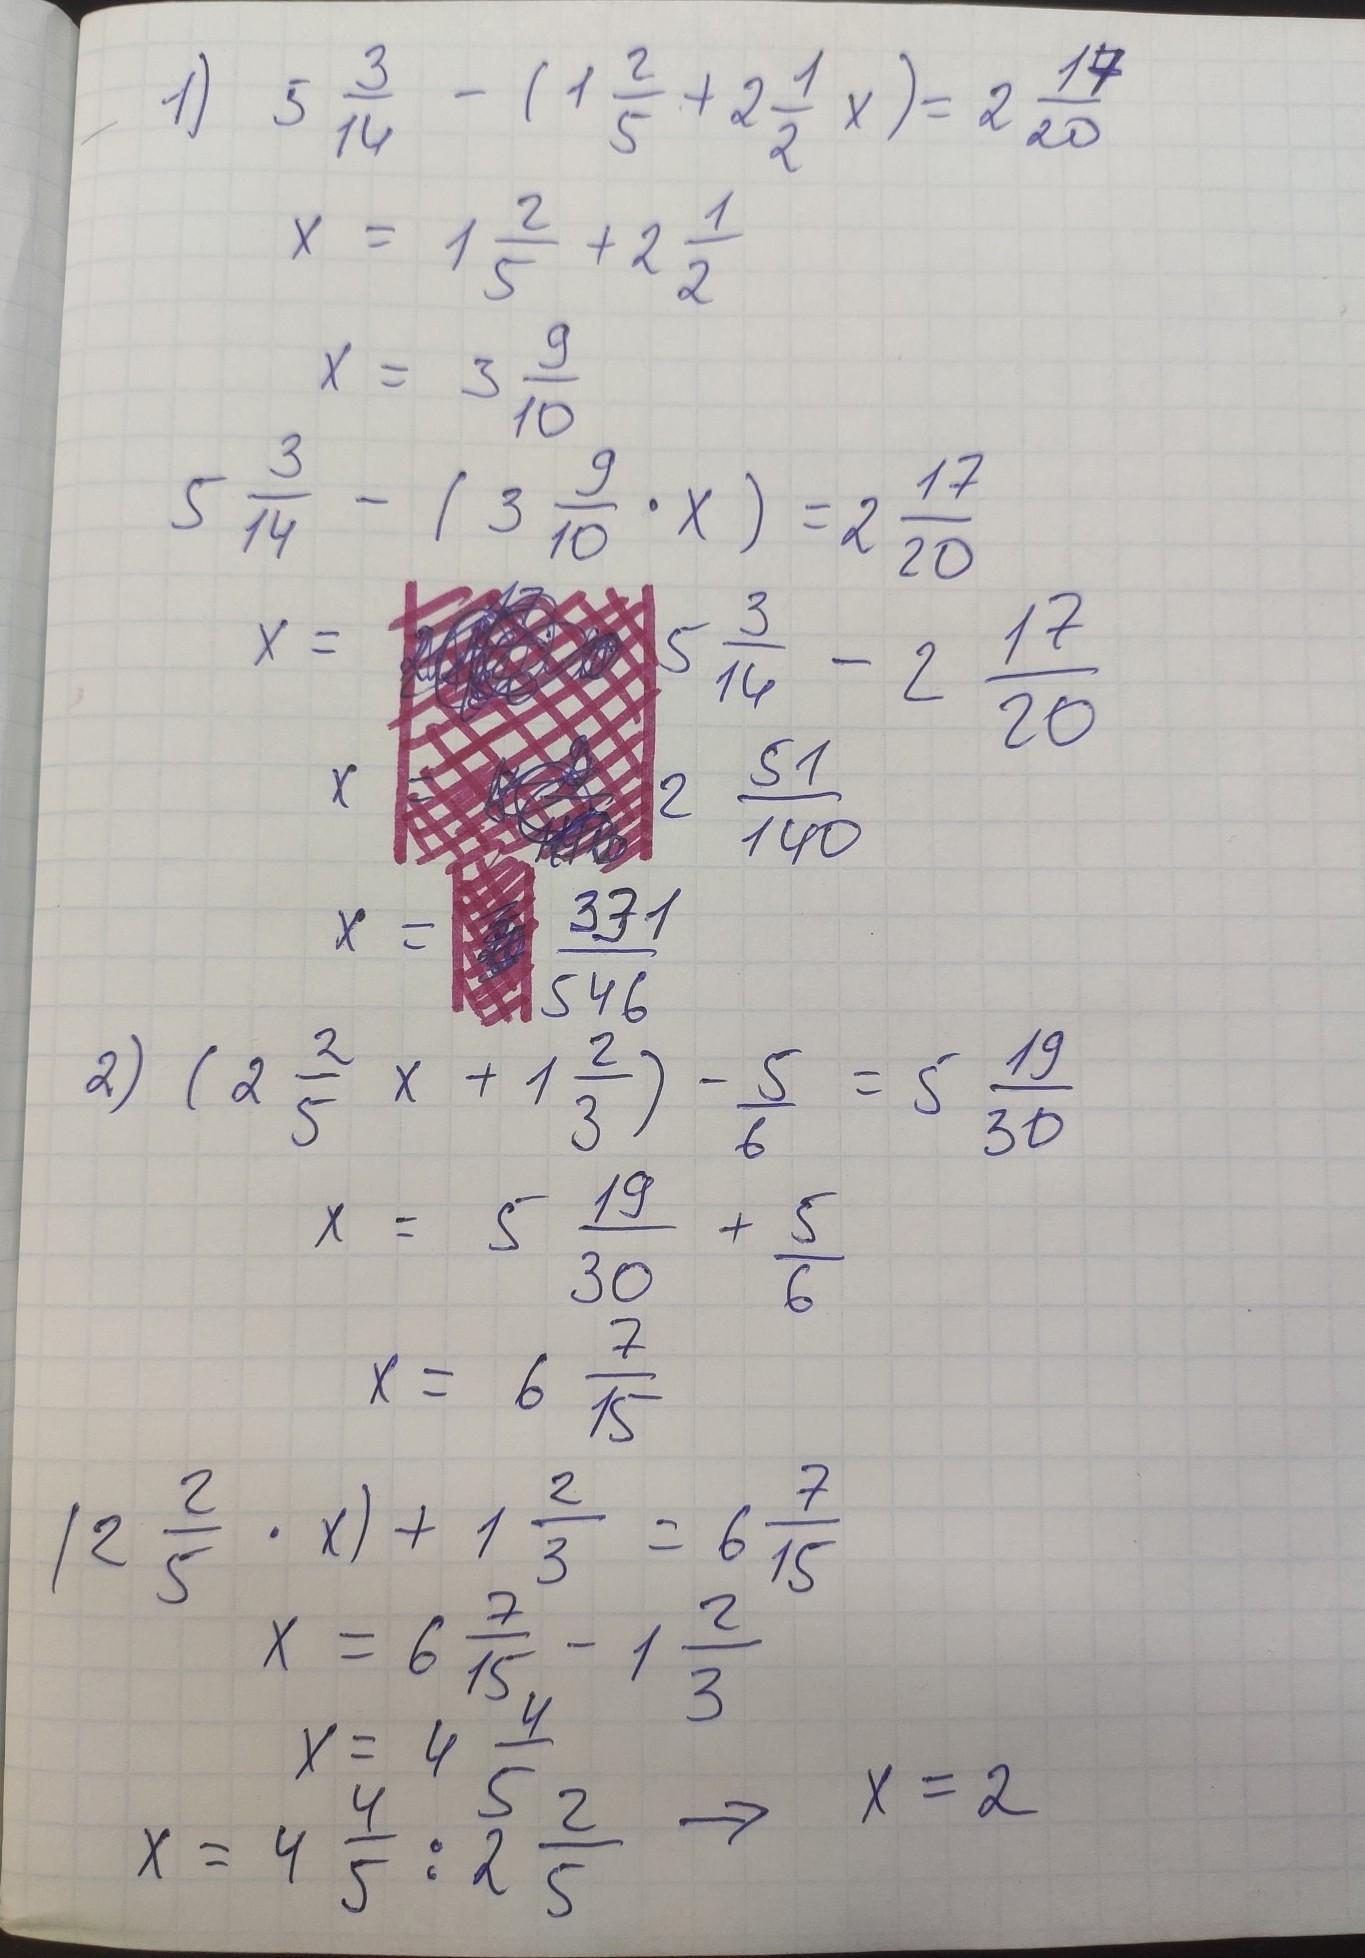 1) 5 3/14 - (1 2/5 + 2 1/2 x) = 2 17/20
x = 1 2/5 + 2 1/2
x = 3 9/10
5 3/14 - (3 9/10 · x) = 2 17/20
x = 5 3/14 - 2 17/20
x = 2 51/140
x = 371/546
2) (2 2/5 x + 1 2/3) - 5/6 = 5 19/30
x = 5 19/30 + 5/6
x = 6 7/15
(2 2/5 · x) + 1 2/3 = 6 7/15
x = 6 7/15 - 1 2/3
x = 4 4/5
x = 4 4/5 : 2 2/5 → x = 2